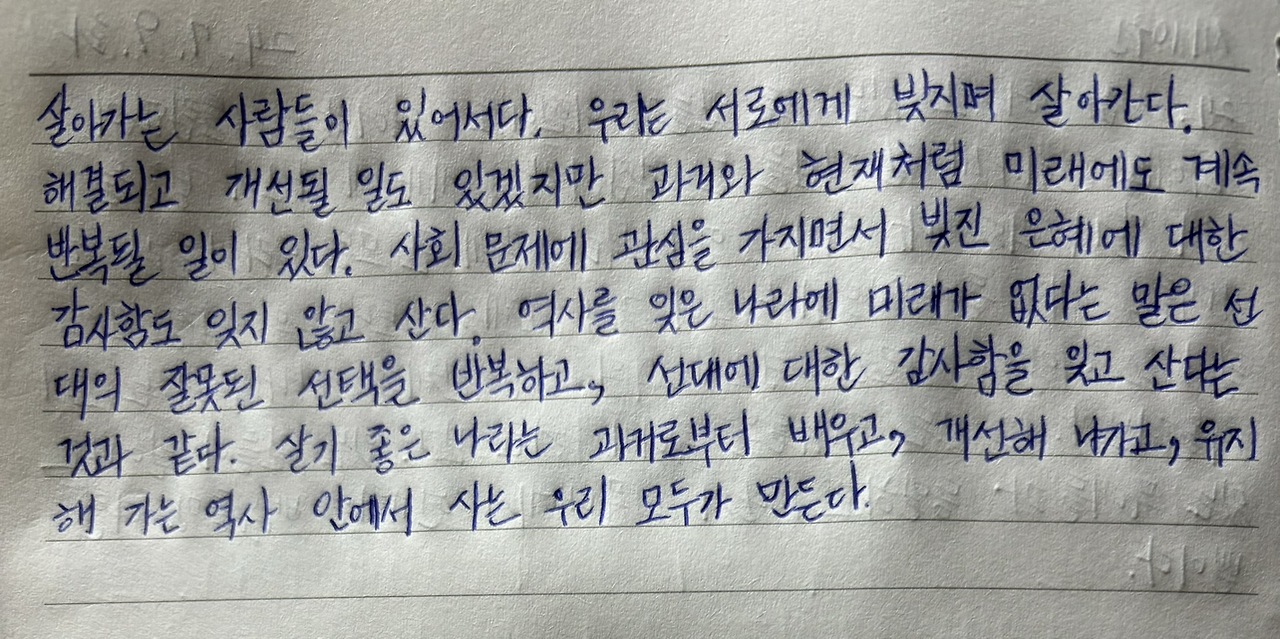 살아가는 사람들이 있어서다. 우리는 서로에게 빚지며 살아간다.
해결되고 개선될 일도 있겠지만 과거와 현재처럼 미래에도 계속
반복될 일이 있다. 사회 문제에 관심을 가지면서 빚진 은혜에 대한
감사함도 잊지 않고 산다. 역사를 잊은 나라에 미래가 없다는 말은 선
대의 잘못된 선택을 반복하고, 선대에 대한 감사함을 잊고 산다는
것과 같다. 살기 좋은 나라는 과거로부터 배우고, 개선해 나가고, 유지
해 가는 역사 안에서 사는 우리 모두가 만든다.